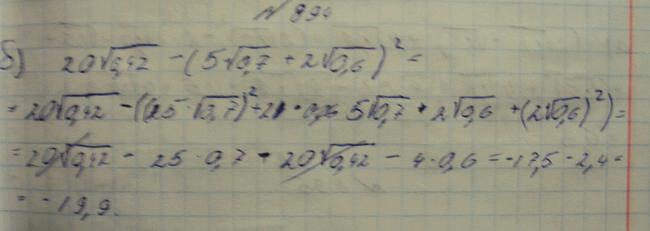 № 894
б) 20√0,42 - (5√0,7 + 2√0,6)² =
= 20√0,42 - ((5·√0,7)² + 2 · 5√0,7 · 2√0,6 + (2√0,6)²) =
= 20√0,42 - 25 · 0,7 - 20√0,42 - 4 · 0,6 = -17,5 - 2,4 =
= -19,9.